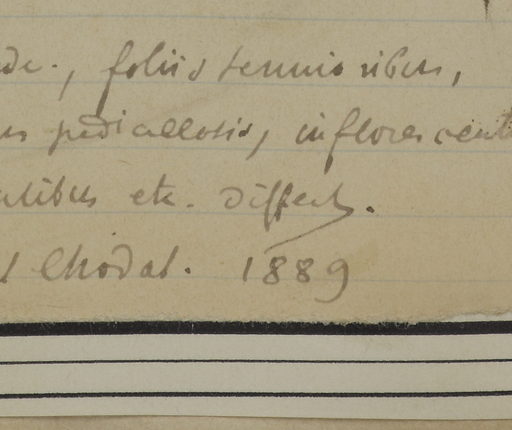 foliis tenuioribus,
pedicellosis, inflorescent
etc. differt.
Chodat. 1889